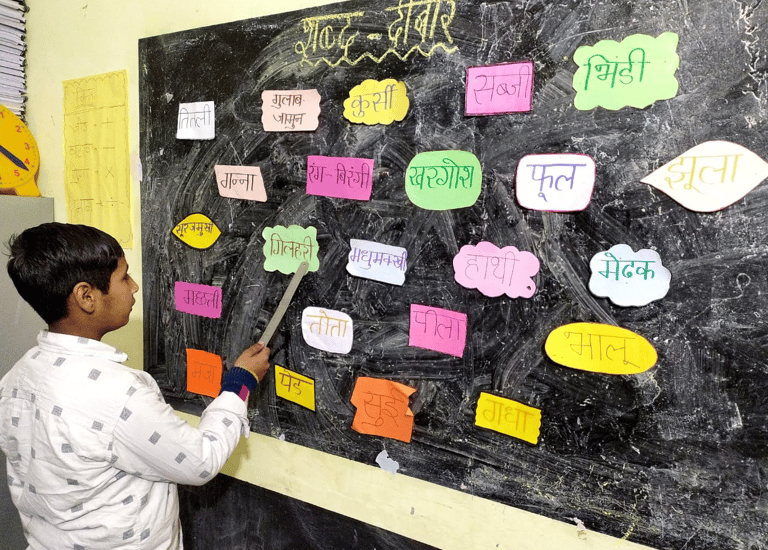 शब्द-दीवार
तितली
गुलाब-
जामुन
कुर्सी
सब्जी
भिंडी
गन्ना
रंग-बिरंगी
खरगोश
फूल
झूला
सूरजमुखी
गिलहरी
मधुमक्खी
हाथी
मेंढक
मछली
तोता
पीला
भालू
पेड
सुई
गधा